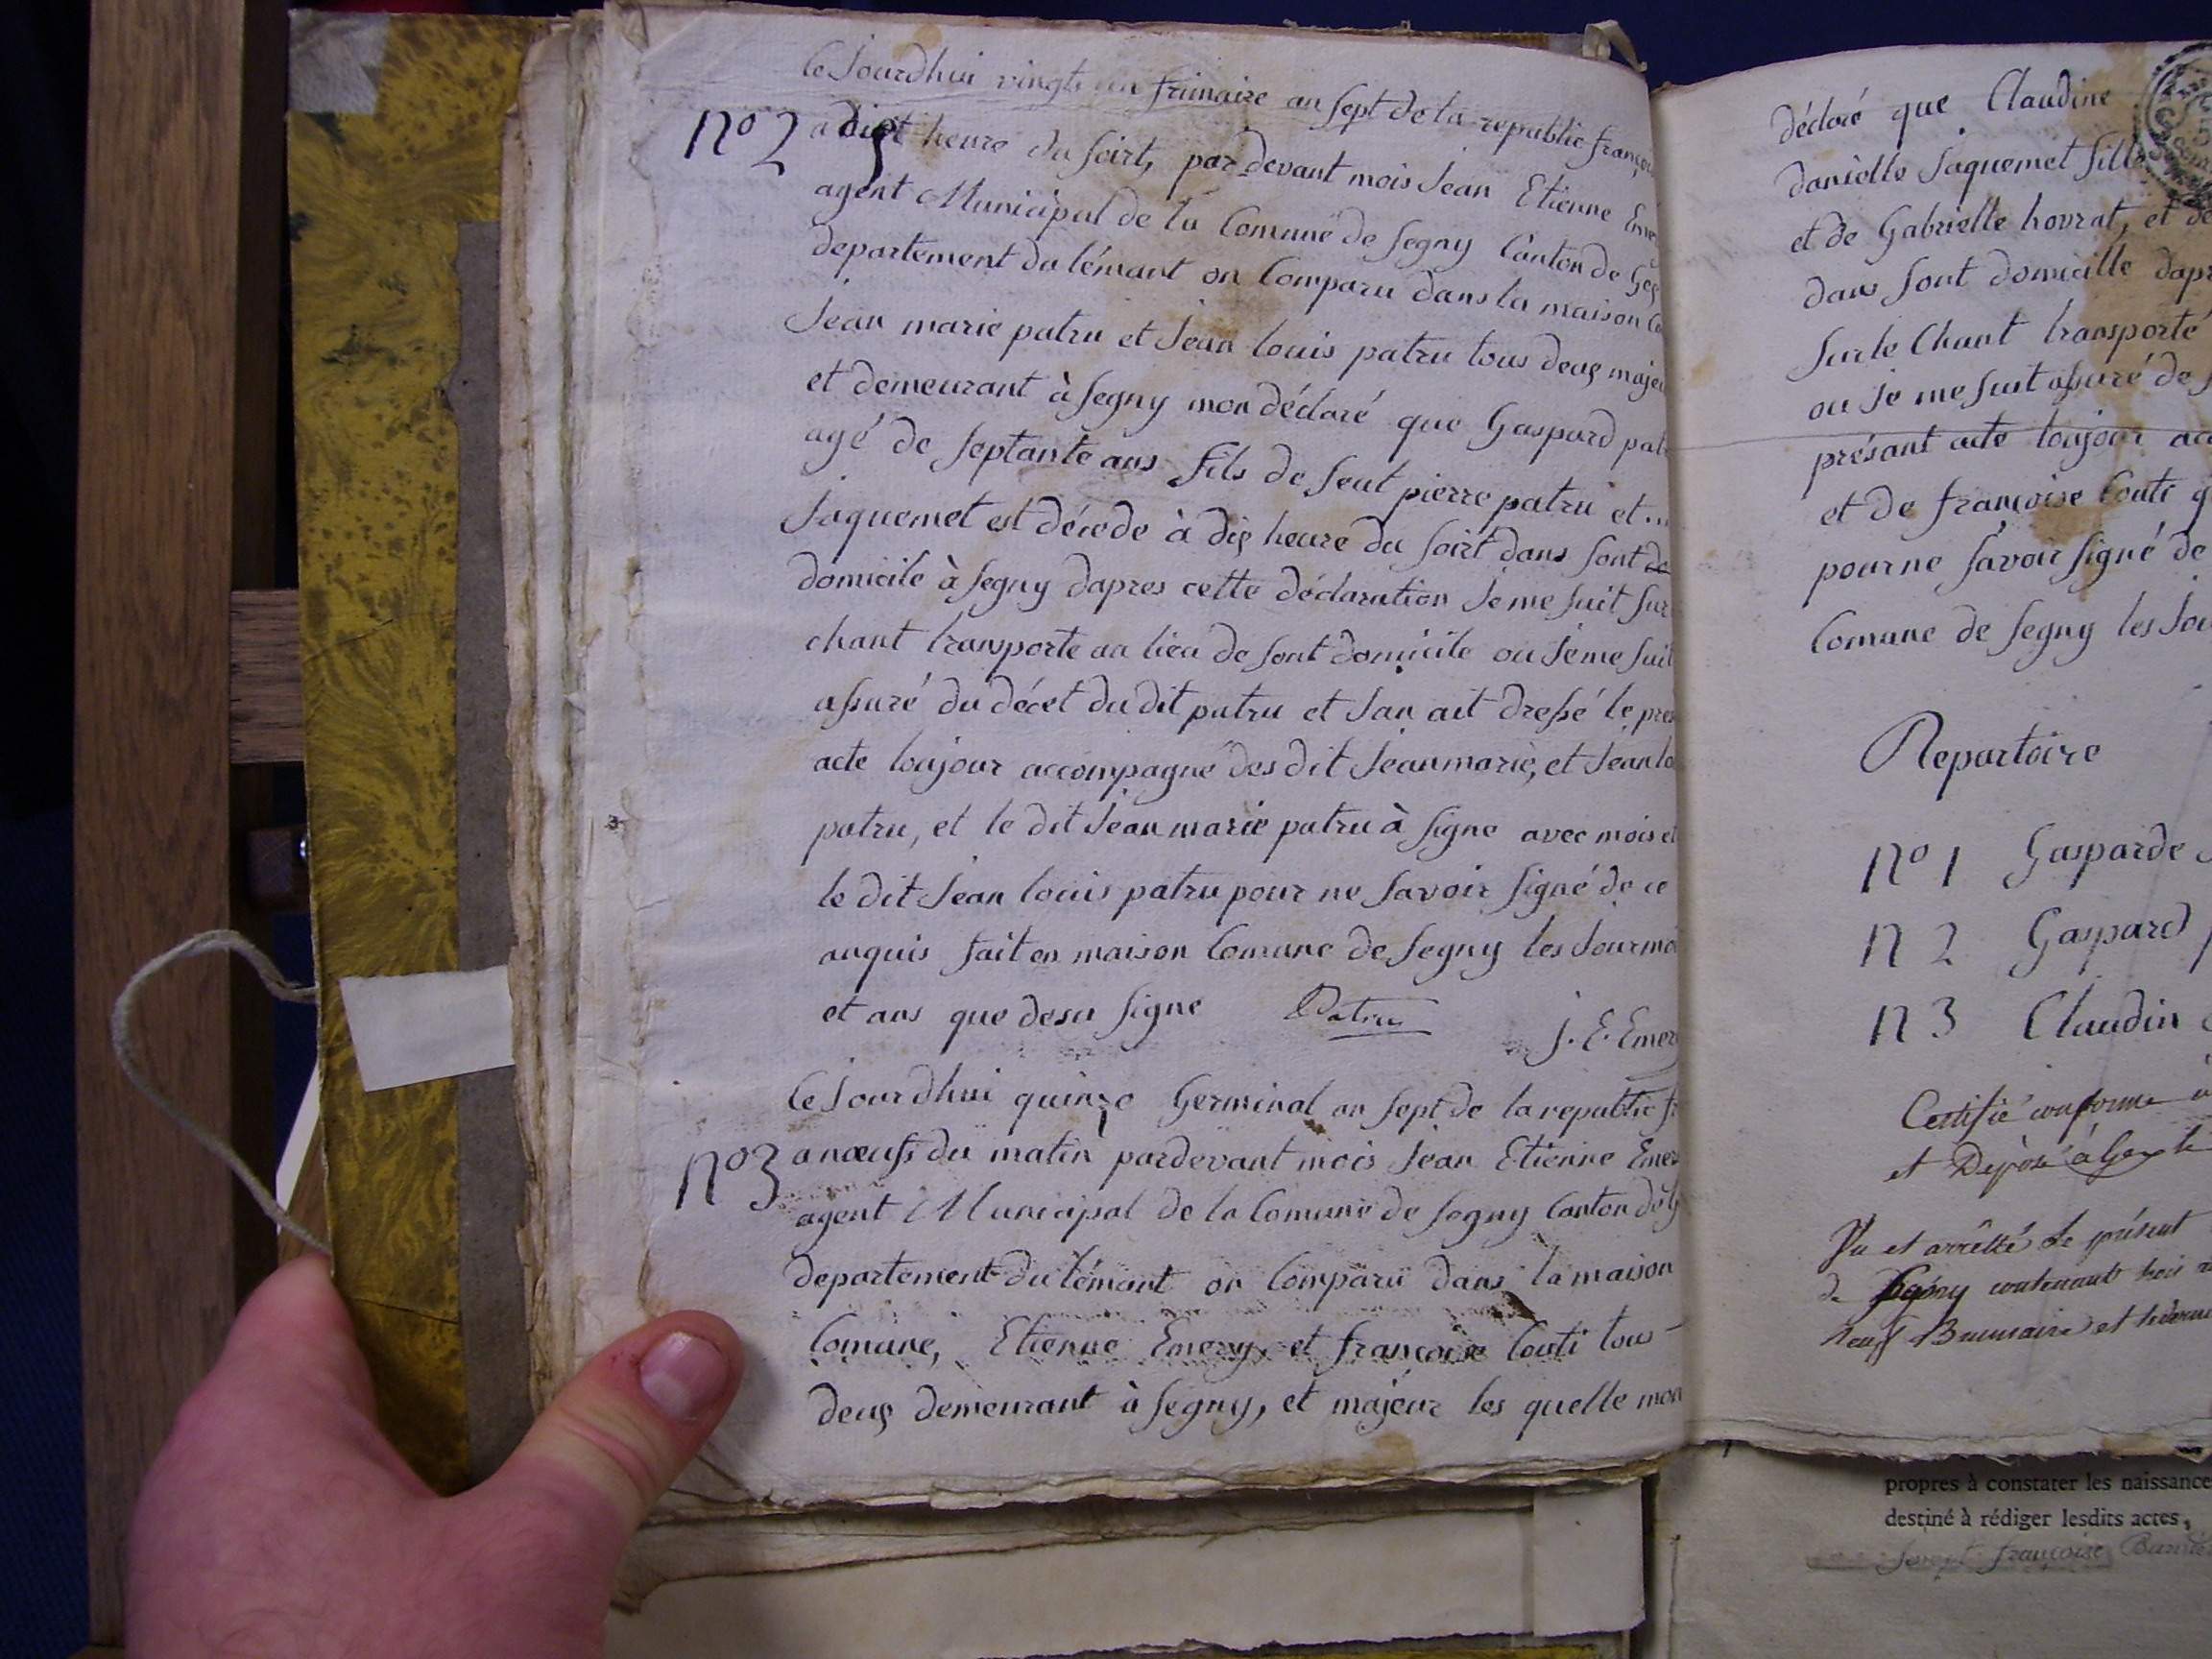 ce Jourdhui vingt un frimaire an sept de la republic françoi
n° 2 a dix heure du soirt, par devant mois Jean Etienne Eme
agent Municipal de la Comune de Segny Canton de Gex
departement du lémant on Comparu dans la maison Co
Jean marie patru et Jean louis patru tous deux majeu
et demeurant à Segny mon déclaré que Gaspard pat
agé de septante ans fils de feut pierre patru et
Jaquemet est décede à dix heure du soirt dans sont de
domicile à Segny dapres cette déclaration Je me suit sur
chant transporte au lieu de sont domicile ou Je me suit
assuré du décet du dit patru et Jan ait dressé le pres
acte toujour accompagné des dit Jean marie, et Jean lo
patru, et le dit Jean marie patru à signe avec mois et
le dit Jean louis patru pour ne savoir signé de ce
anquis fait en maison Comune de Segny les Jour mo
et ans que desu signe Patru J. E. Emer
Ce Jourdhui quinze Germinal an sept de la republic fr
n° 3 a nœufs du matin pardevant mois Jean Etienne Emer
agent Municipal de la Comune de Segny Canton de G
departement du lémant on Comparu dans la maison
Comune, Etienne Emery, et françoise Couti tous
deux demeurant à Segny, et majeur les quelle mon
déclaré que Claudine
danielle Jaquemet fille
et de Gabrielle hovrat, et de
dans sont domicille dapr
sur le Chant transporté
ou Je me suit assuré de
présant acte toujour acc
et de françoise Couti q
pour ne savoir signé de
Comune de Segny les Jou
Repertoire
n° 1 Gasparde
n 2 Gaspard p
n 3 Claudin
Certifié conforme
et Déposé à Gex le
Vu et arrêtté le présent
de Segny contenant trois
neuf Brumaire et
propres à constater les naissance
destiné à rédiger lesdits actes,
françoise